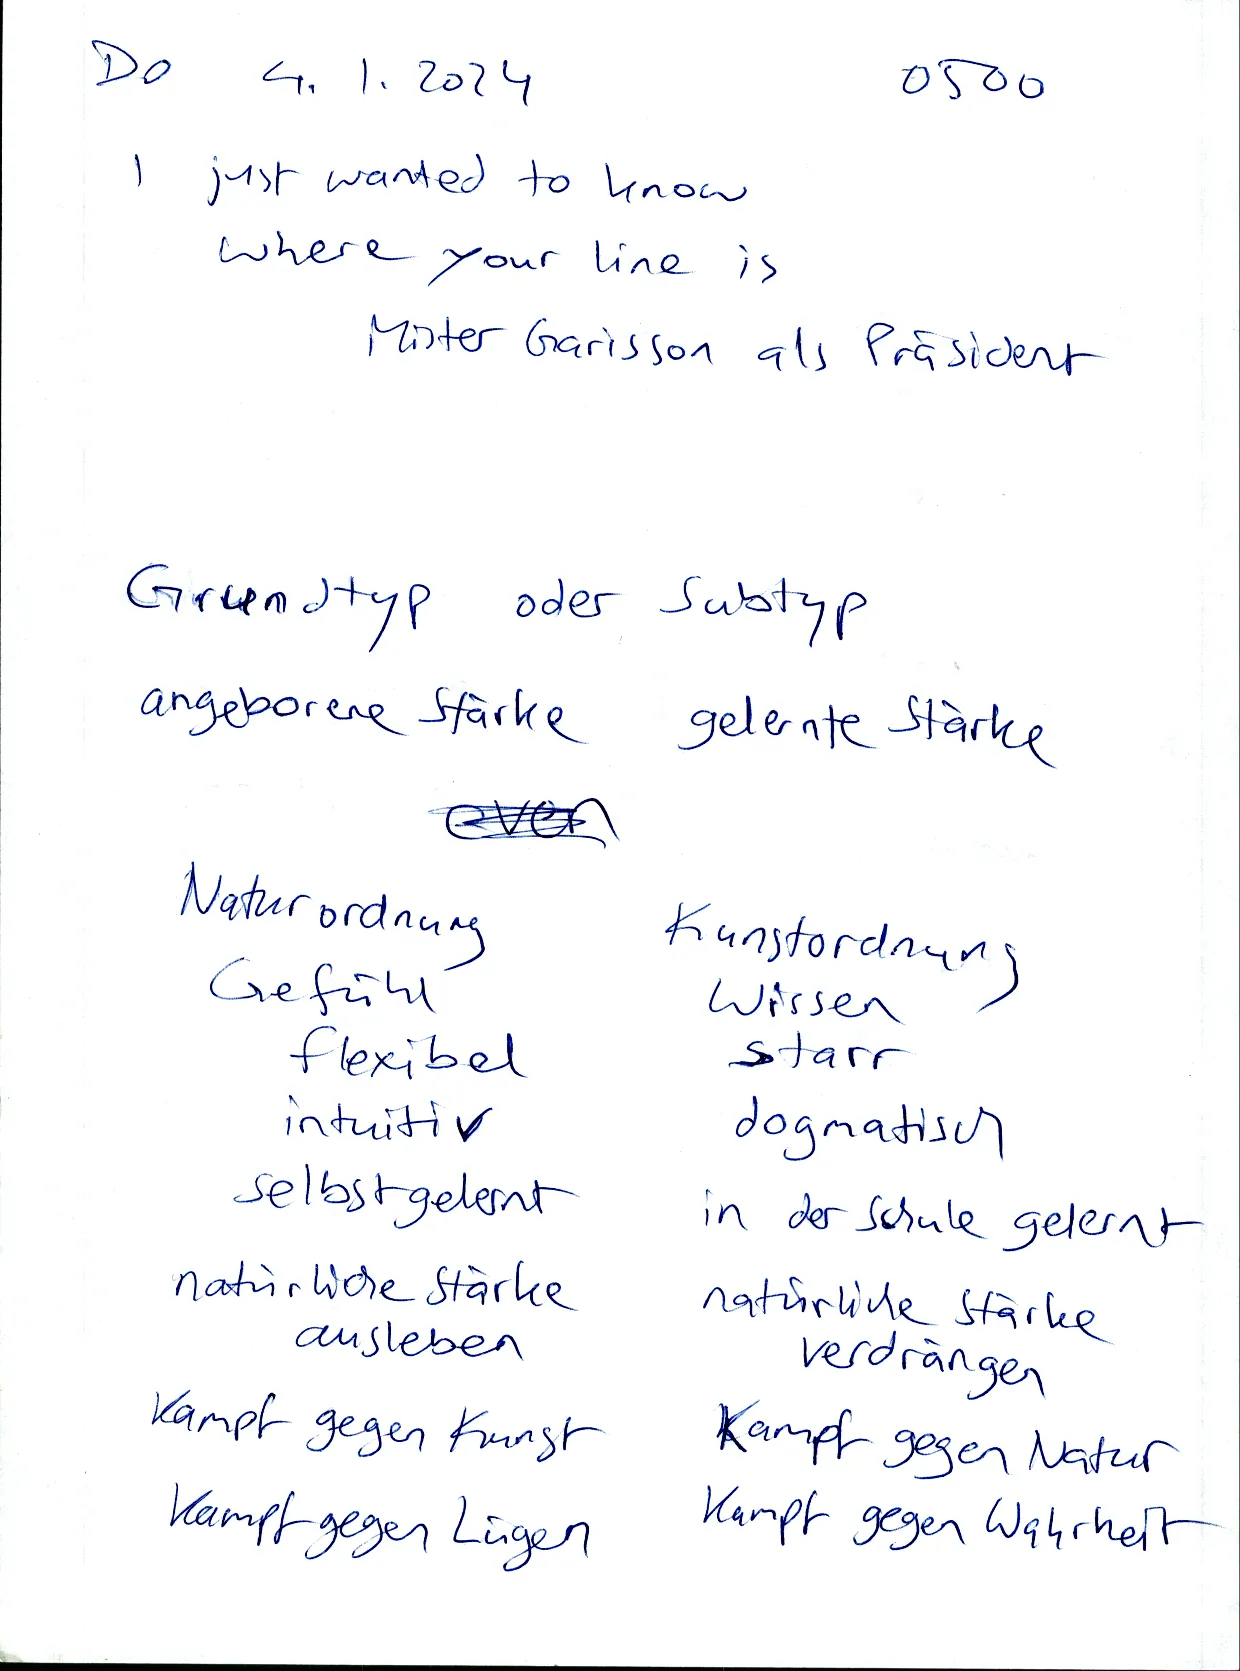 Do 4. 1. 2024 0500
I just wanted to know
where your line is
Mister Garisson als Präsident
Grundtyp oder Subtyp
angeborene Stärke gelernte Stärke
Naturordnung Kunstordnung
Gefühl Wissen
flexibel starr
intuitiv dogmatisch
selbstgelernt in der Schule gelernt
natürliche Stärke natürliche Stärke
ausleben verdrängen
Kampf gegen Kunst Kampf gegen Natur
Kampf gegen Lügen Kampf gegen Wahrheit